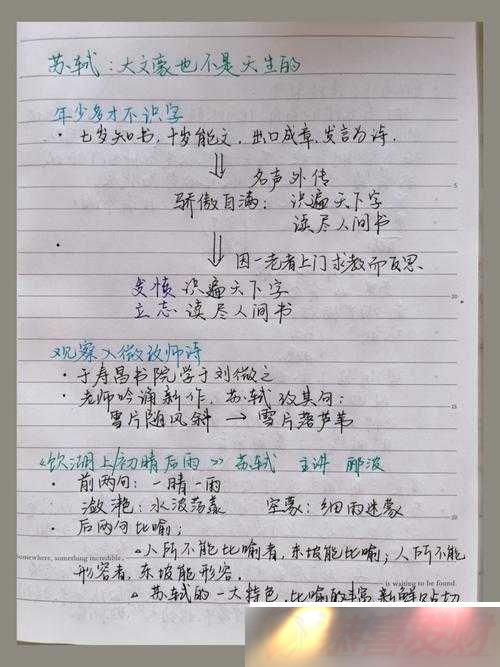 苏轼：大文豪也不是天生的
年少多才不识字
· 七岁知书，十岁能文，出口成章，发言为诗.
名声外传
骄傲自满：识遍天下字
读尽人间书
因一老者上门求教而反思
发愤 识遍天下字
立志 读尽人间书
观察入微改师诗
· 于寿昌书院学于刘微之
· 老师吟诵新作，苏轼改其句：
雪片随风斜 → 雪片落芦苇
《饮湖上初晴后雨》苏轼 主讲 郦波
· 前两句：一晴一雨
潋滟：水波荡漾 空蒙：细雨迷蒙
· 后两句比喻；
人所不能比喻者，东坡能比喻；人所不能
Somewhere, something incredible
形容者，东坡能形容.
is waiting to be found.
苏轼的一大特色，比喻的丰富、新鲜
5
10
15
20